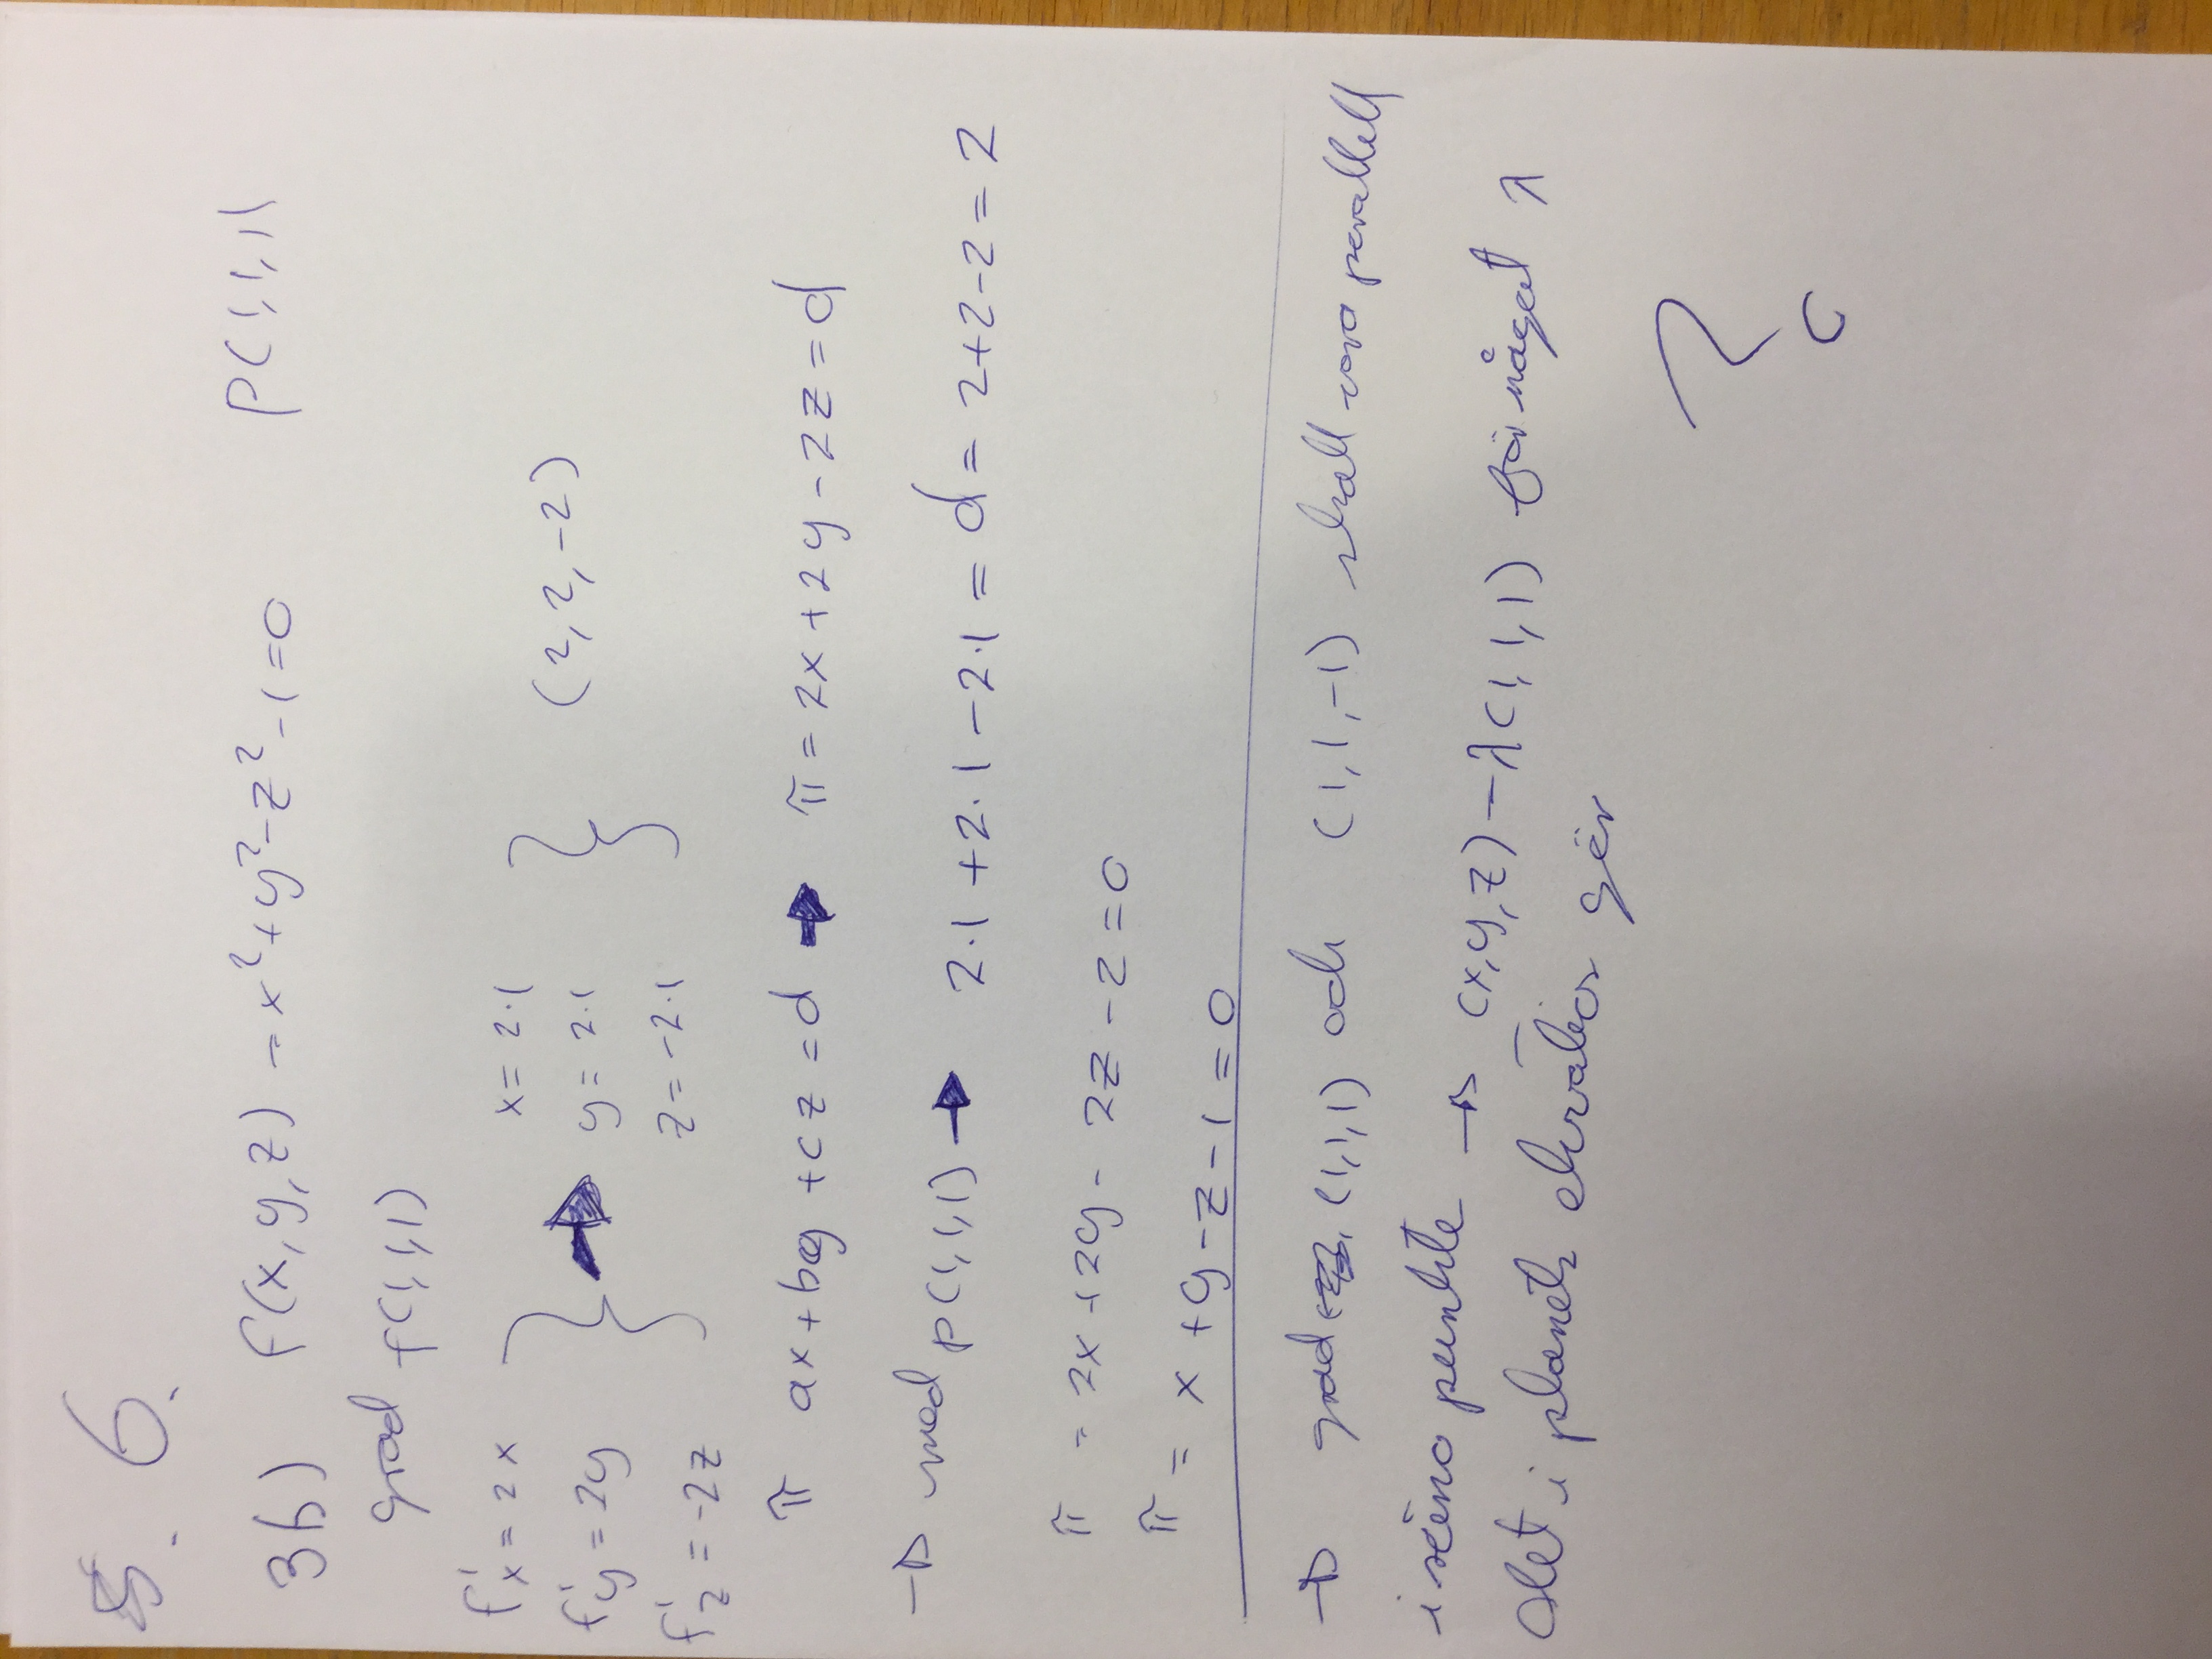 5. 6.
3b) f(x,y,z) = x²+y²-z²-1=0 p(1,1,1)
grad f(1,1,1)
f'x = 2x x = 2·1
f'y = 2y → y = 2·1 (2,2,-2)
f'z = -2z z = -2·1
π ax+by+cz=d → π = 2x+2y-2z=d
→ med p(1,1,1) → 2·1+2·1-2·1 = d = 2+2-2 = 2
π = 2x+2y-2z-2=0
π = x+y-z-1=0
→ grad (1,1,1) och (1,1,-1) skall vara parallell
i punkte → (x,y,z) = λ(1,1,1) för något λ
det i planets gör
?